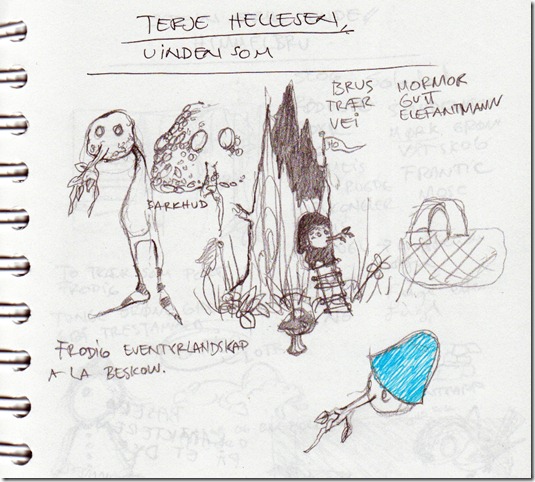 TERJE HELLESEN,
VINDEN SOM
BRUS
TRÆR
VEI
MORMOR
GUTT
ELEFANTMANN
BARKHUD
FRODIG EVENTYRLANDSKAP
A LA BESKOW.